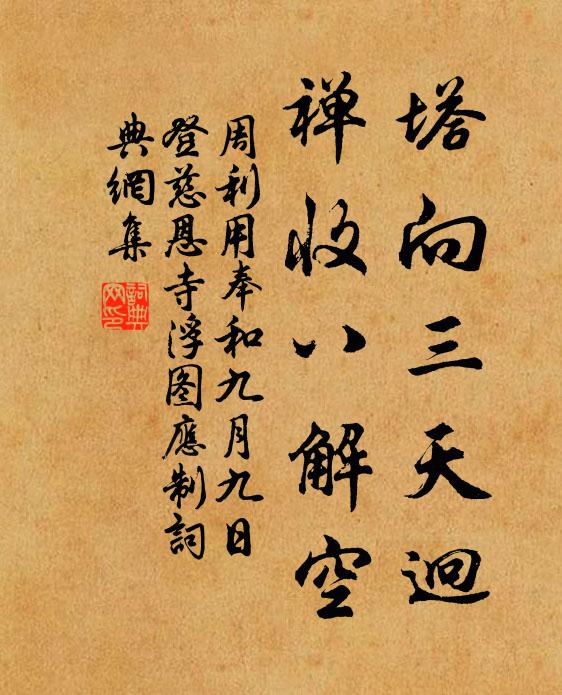 塔向三天迥
禅收八解空
周利用奉和九月九日
登慈恩寺浮图應制詞
典網集
詞典網印